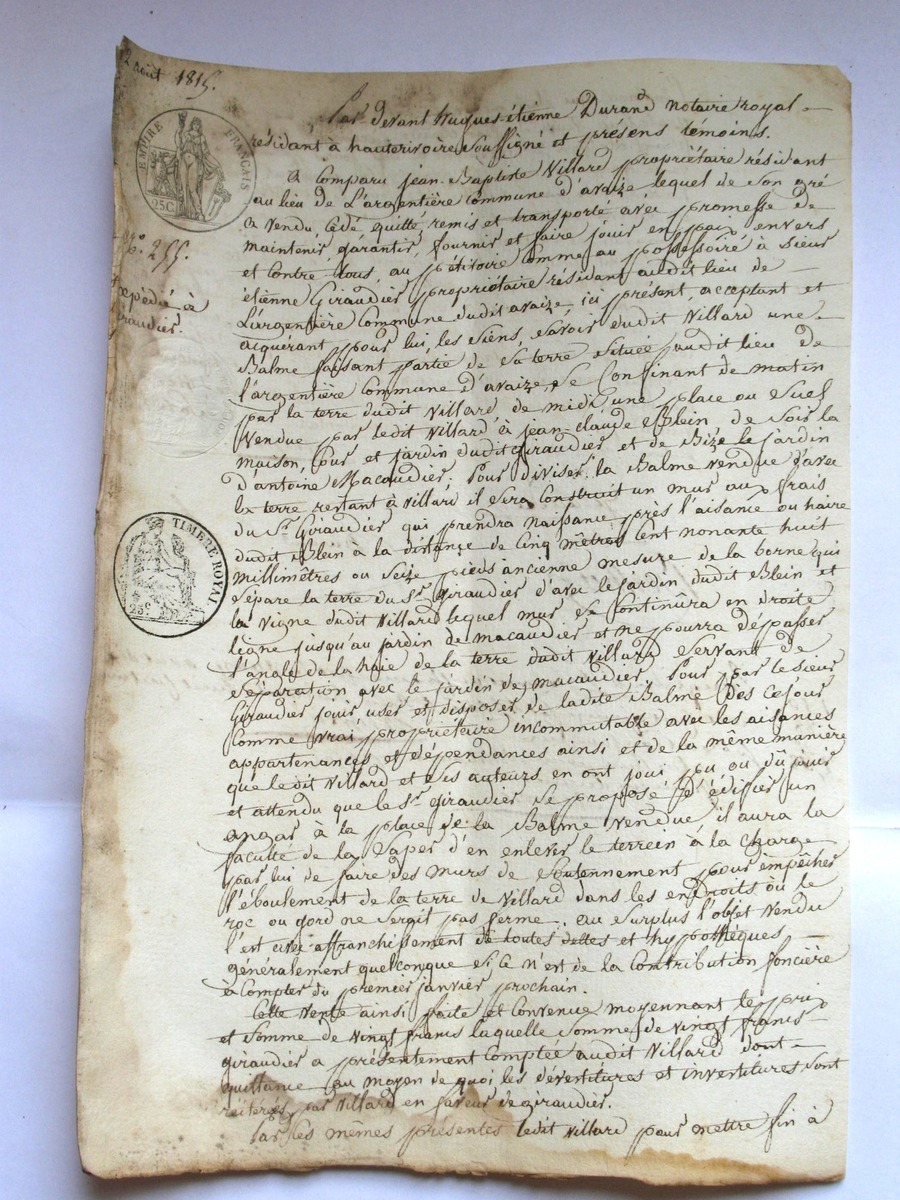 2 août 1815.
EMPIRE FRANÇAIS
25C
255.
expédié à
Giraudier.
TIMBRE ROYAL
25c
Par devant hugues-étienne Durand notaire royal
résidant à hauterivoire soussigné et présens témoins.
a Comparu jean-Baptiste Villard propriétaire résidant
au lieu de L'argentière Commune d'avaize lequel de Son gré
a Vendu, Cédé, quitté, remis et transporté avec promesse de
maintenir, garantir, fournir et faire jouir en paix envers
et Contre tous, au pétitoire Comme au possessoire à Sieur
étienne Giraudier propriétaire résidant audit lieu de
L'argentière Commune dudit avaize ici présent, acceptant et
acquérant pour lui, les Siens, Savoir dudit Villard une
Balme faisant partie de Sa terre Située audit lieu de
l'argentière Commune d'avaize, Se Confinant de matin
par la terre dudit Villard, de midi une place ou Suel
Vendue par ledit Villard à jean-claude Blein de Soir la
maison, Cour et jardin dudit Giraudier et de Bize le jardin
d'antoine Macaudier; Pour diviser la Balme vendue d'avec
la terre restant à Villard il Sera Construit un mur aux frais
du Sr. Giraudier qui prendra Naissance près l'aisance ou haire
dudit Blein à la distance de Cinq mètres Cent nonante huit
millimêtres ou Seize pieds ancienne mesure de la borne qui
Sépare la terre du Sr. Giraudier d'avec le jardin dudit Blein et
la vigne dudit Villard lequel mur Se Continûra en droite
ligne jusqu'au jardin de macaudier et ne pourra dépasser
l'angle de la haie de la terre dudit Villard Servant de
Séparation avec le jardin de Macaudier. Pour par le Sieur
Giraudier jouir, user et disposer de ladite Balme Dès Cejour
Comme Vrai propriétaire incommutable avec les aisances
appartenances et dépendances ainsi et de la même manière
que ledit Villard et Ses auteurs en ont joui pu ou dû jouir
et attendu que le Sr. Giraudier Se propose D'édifier un
angar à la place de la Balme Vendue il aura la
faculté de la Saper d'en enlever le terrein à la charge
par lui de faire des murs de Soutennement pour empêcher
l'éboulement de la terre de Villard dans les endroits où le
roc ou gord ne Serait pas ferme. au Surplus l'objet Vendu
l'est avec affranchissement de toutes dettes et hypothèques
généralement quelconque Si Ce n'est de la Contribution foncière
à Compter du premier janvier prochain.
Cette Vente ainsi faite et Convenue moyennant le prix
et Somme de Vingt francs laquelle Somme de Vingt francs
Giraudier a présentement Comptée audit Villard dont
quittance au moyen de quoi les dévestitures et investitures Sont
réitérés par Villard en faveur de giraudier.
Par les mêmes présentes ledit Villard pour mettre fin à